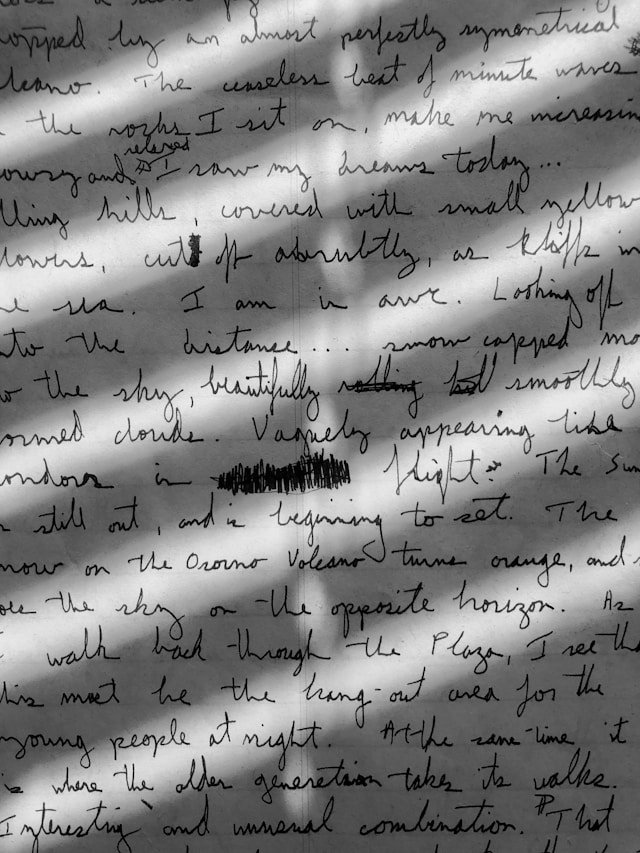 topped by an almost perfectly symmetrical
lcano. The ceaseless beat of minute waves
the rocks I sit on, make me increasin
relaxed
owsy and I saw my dreams today...
lling hills, covered with small yellow
lowers, cut off abrubtly, as kliffs in
he sea. I am in awe. Looking off
nto the distance.... snow capped mo
the sky, beautifully smoothly
ormed clouds. Vaguely appearing like
ondors in flight. The Sun
is still out, and is beginning to set. The
now on the Osorno Volcano turns orange, and
oes the sky on the opposite horizon. As
I walk back through the Plaza, I see tha
his must be the hang-out area for the
young people at night. At the same-time it
is where the older generation takes its walks.
Interesting and unusual combination. That